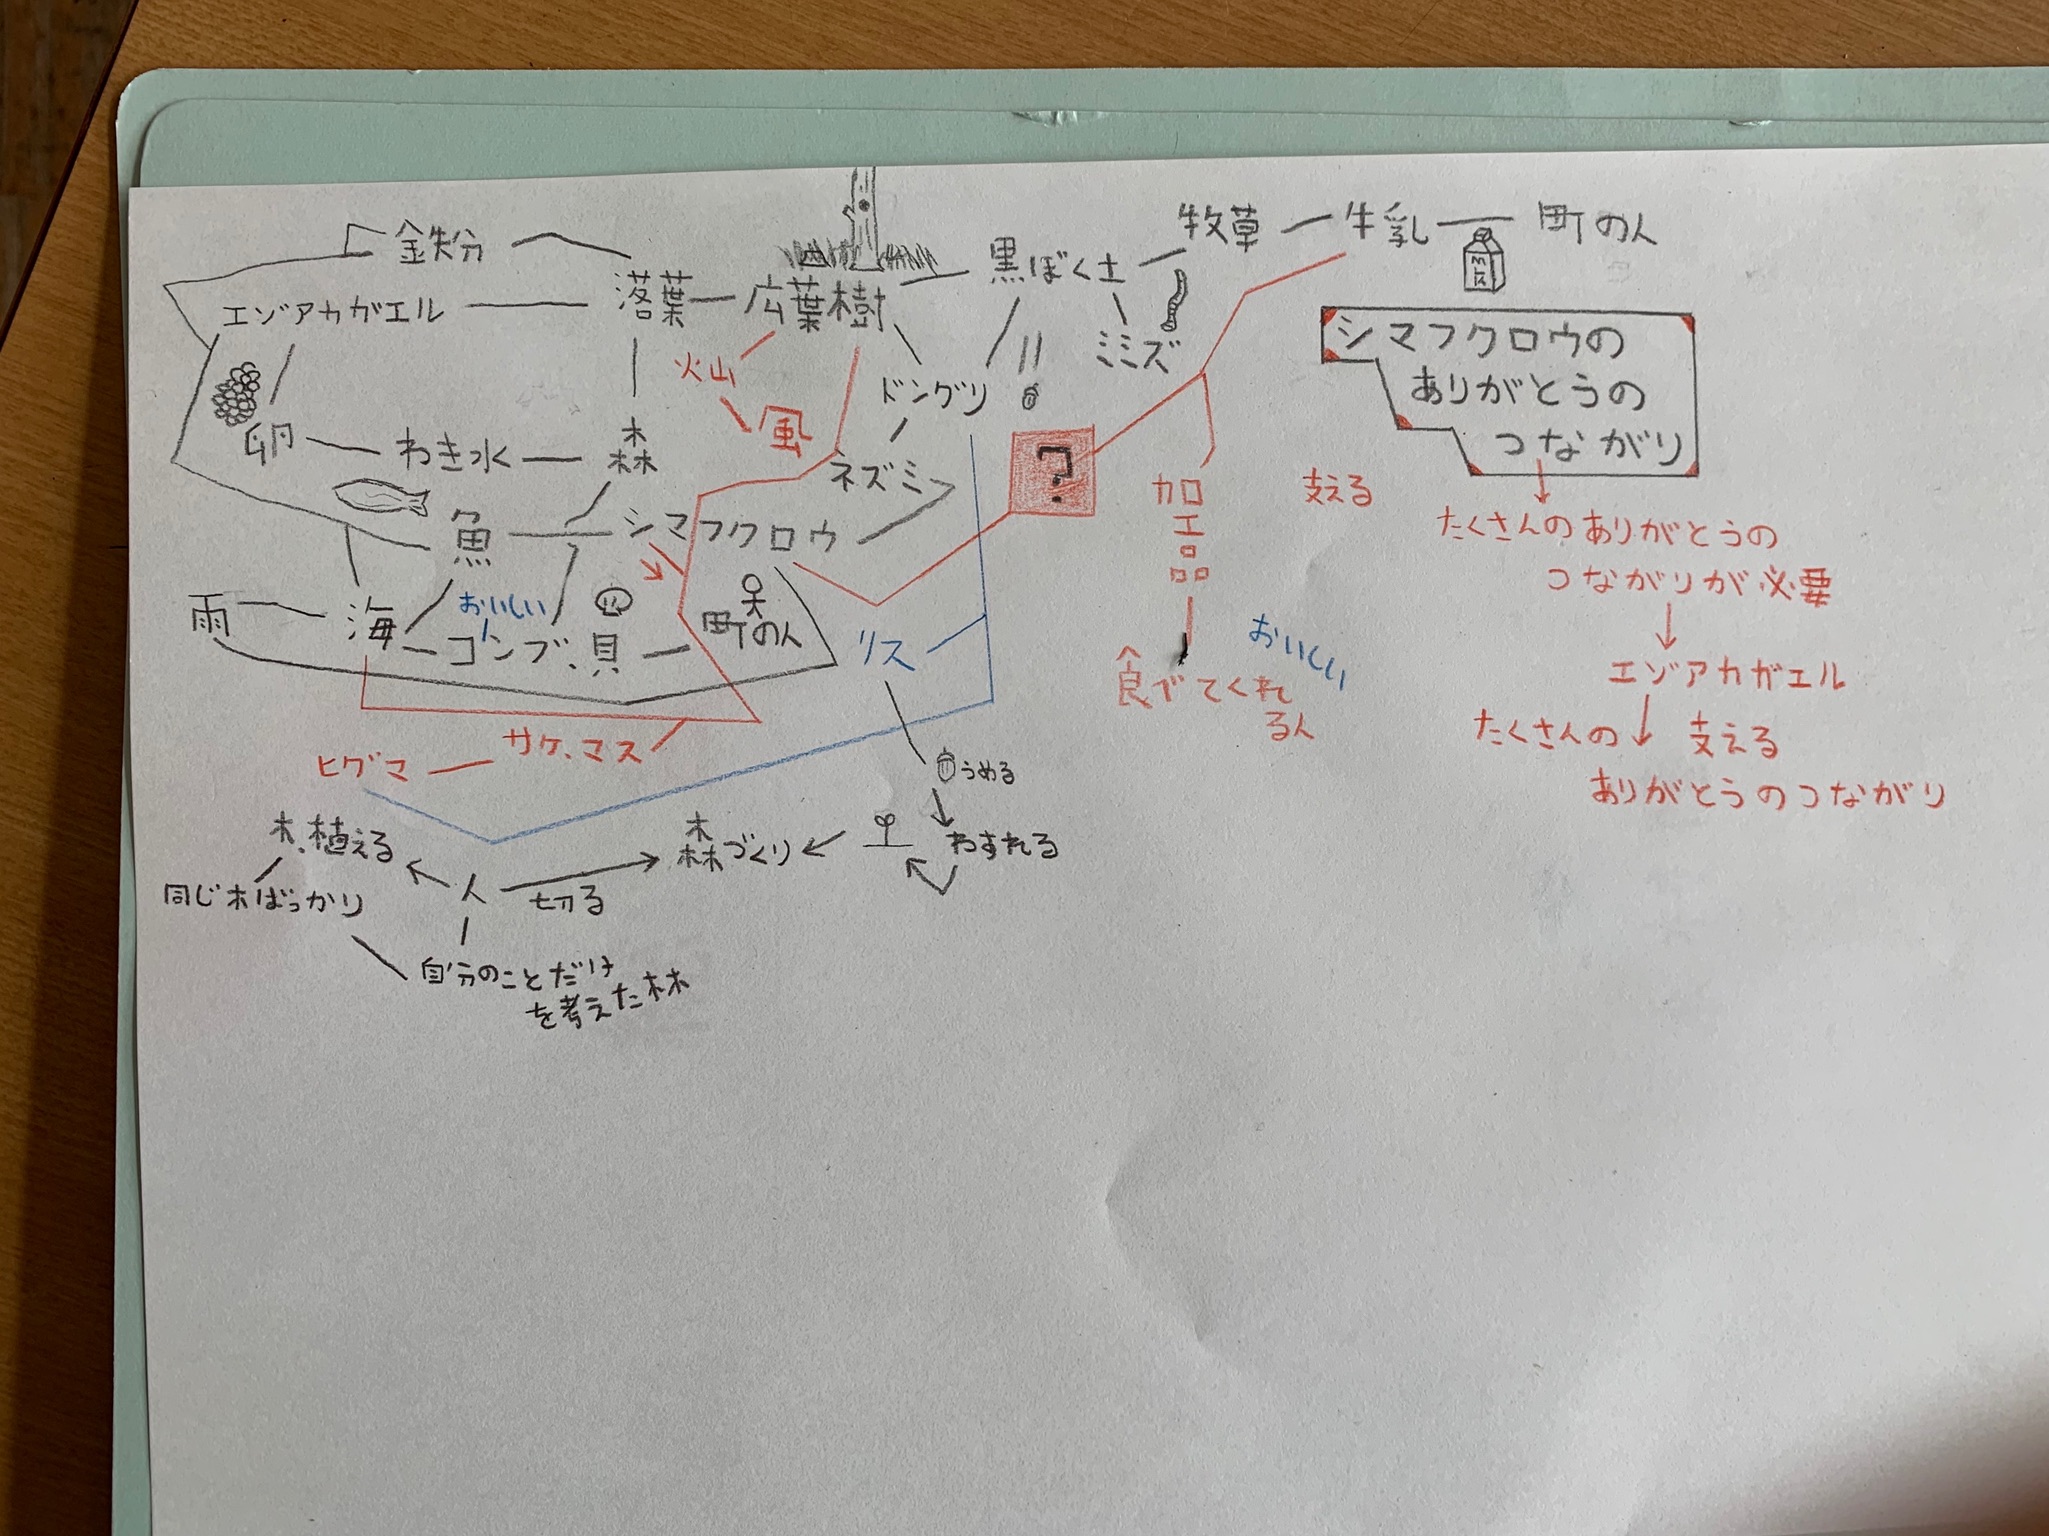 鉄粉
牧草
牛乳
町の人
エゾアカガエル
落葉
広葉樹
黒ぼく土
MILK
火山
風
ドングリ
ミミズ
シマフクロウの
ありがとうの
つながり
卵
わき水
森
ネズミ
?
加工品
支える
たくさんのありがとうの
つながりが必要
魚
シマフクロウ
雨
海
おいしい
コンブ、貝
町の人
リス
食べてくれ
る人
おいしい
エゾアカガエル
たくさんの
支える
ありがとうのつながり
ヒグマ
サケ、マス
うめる
木、植える
森づくり
わすれる
同じ木ばっかり
人
切る
自分のことだけ
を考えた林